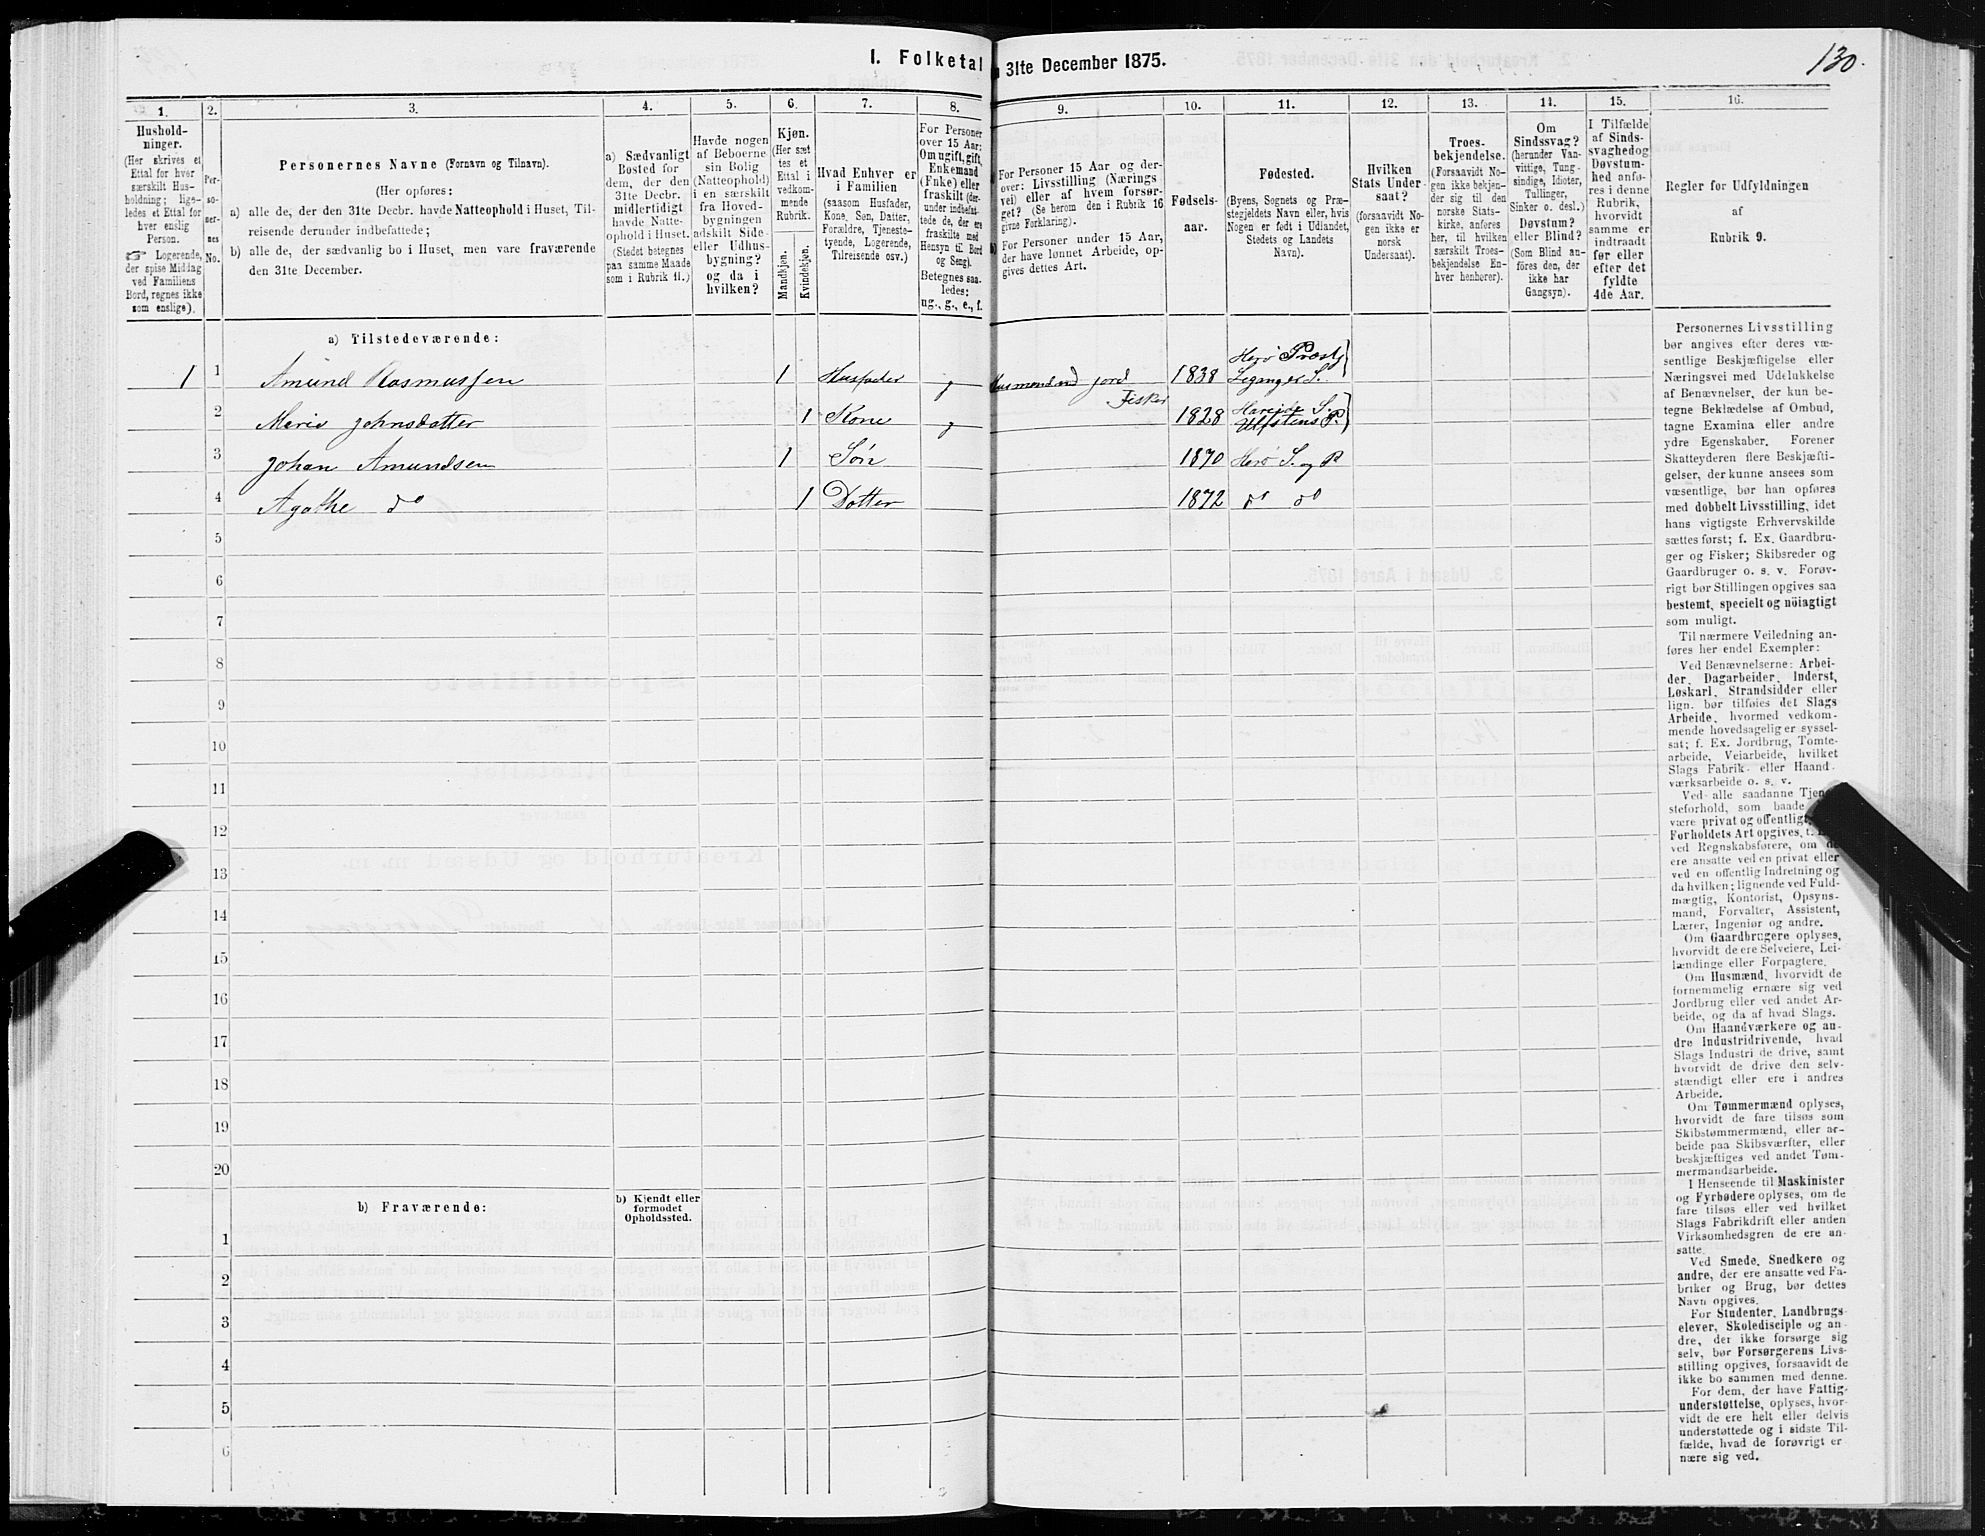 I. Folketal
31te December 1875.
130.
1.
Hushold-
ninger.
(Her skrives et
Ettal for hver
særskilt Hus-
holdning; lige-
ledes et Ettal for
hver enslig
Person.
☞ Logerende,
der spise Middag
ved Familiens
Bord, regnes ikke
som enslige).
2.
Per-
so-
ner-
nes
No.
3.
Personernes Navne (Fornavn og Tilnavn).
(Her opføres:
a) alle de, der den 31te Decbr. havde Natteophold i Huset, Til-
reisende derunder indbefattede;
b) alle de, der sædvanlig bo i Huset, men vare fraværende
den 31te December.
4.
a) Sædvanligt
Bosted for
dem, der den
31te Decbr.
midlertidigt
havde Natte-
ophold i Huset.
(Stedet betegnes
paa samme Maade
som i Rubrik 11.)
5.
Havde nogen
af Beboerne
sin Bolig
(Natteophold)
i en særskilt
fra Hoved-
bygningen
adskilt Side-
eller Udhus-
bygning?
og da i
hvilken?
6.
Kjøn.
(Her sæt-
tes et
Ettal i
vedkom-
mende
Rubrik.
Mandkjøn.
Kvindekjøn.
7.
Hvad Enhver er
i Familien
(saasom Husfader,
Kone, Søn, Datter,
Forældre, Tjeneste-
tyende, Logerende,
Tilreisende osv.)
8.
For Personer
over 15 Aar:
Om ugift, gift,
Enkemand
(Enke) eller
fraskilt (der-
under indbefat-
tede de, der ere
fraskilte med
Hensyn til Bord
og Seng).
Betegnes saa-
ledes:
ug., g., e., f.
9.
For Personer 15 Aar og der-
over: Livsstilling (Nærings-
vei) eller af hvem forsør-
get? (Se herom den i Rubrik 16
givne Forklaring).
For Personer under 15 Aar,
der have lønnet Arbeide, op-
gives dettes Art.
10.
Fødsels-
aar.
11.
Fødested.
(Byens, Sognets og Præ-
stegjeldets Navn eller, hvis
Nogen er født i Udlandet,
Stedets og Landets
Navn).
12.
Hvilken
Stats Under-
saat?
(forsaavidt No-
gen ikke er
norsk
Undersaat).
13.
Troes-
bekjendelse.
(Forsaavidt No-
gen ikke bekjen-
der sig til den
norske Stats-
kirke, anføres
her, til hvilken
særskilt Troes-
bekjendelse En-
hver henhører).
14.
Om
Sindssvag?
(herunder Van-
vittige, Tung-
sindige, Idioter,
Tullinger,
Sinker o. desl.)
Døvstum?
eller Blind?
(Som Blind an-
føres den, der
ikke har
Gangsyn).
15.
I Tilfælde
af Sinds-
svaghed og
Døvstum-
hed anfø-
res i denne
Rubrik,
hvorvidt
samme er
indtraadt
før eller
efter det
fyldte
4de Aar.
16.
Regler for Udfyldningen
af
Rubrik 9.
a) Tilstedeværende:
1 1 Amund Rasmussen 1 Husfader g Husmand m jord Fisker 1838 Herø Præstg Leganger S.
2 Marie Johnsdatter 1 Kone g 1828 Hareide S. Ulfstens P.
3 Johan Amundsen 1 Søn 1870 Herø S. og P
4 Agathe do 1 Datter 1872 do do
5
6
7
8
9
10
11
12
13
14
15
16
17
18
19
20
b) Fraværende:
b) Kjendt eller
formodet
Opholdssted.
1
2
3
4
5
6
Personernes Livsstilling
bør angives efter deres væ-
sentlige Beskjæftigelse eller
Næringsvei med Udelukkelse
af Benævnelser, der kun be-
tegne Beklædelse af Ombud,
tagne Examina eller andre
ydre Egenskaber. Forener
Skatteyderen flere Beskjæfti-
gelser, der kunne ansees som
væsentlige, bør han opføres
med dobbelt Livsstilling, idet
hans vigtigste Erhvervskilde
sættes først; f. Ex. Gaardbru-
ger og Fisker; Skibsreder og
Gaardbruger o. s. v. Forøv-
rigt bør Stillingen opgives saa
bestemt, specielt og nöiagtigt
som muligt.
Til nærmere Veiledning an-
føres her endel Exempler:
Ved Benævnelserne: Arbei-
der, Dagarbeider, Inderst,
Løskarl, Strandsidder eller
lign. bør tilføies det Slags
Arbeide, hvormed vedkom-
mende hovedsagelig er syssel-
sat; f. Ex. Jordbrug, Tomte-
arbeide, Veiarbeide, hvilket
Slags Fabrik- eller Haand-
værksarbeide o. s. v.
Ved alle saadanne Tjene-
steforhold, som baade
være privat og offentligt,
Forholdets Art opgives, f.
ved Regnskabsførere, om de
ere ansatte ved en privat eller
ved en offentlig Indretning og
da hvilken; lignende ved Fuld-
mægtig, Kontorist, Opsyns-
mand, Forvalter, Assistent,
Lærer, Ingeniør og andre.
Om Gaardbrugere oplyses,
hvorvidt de ere Selveiere, Lei-
lændinge eller Forpagtere.
Om Husmænd, hvorvidt de
fornemmelig ernære sig ved
Jordbrug eller ved andet Ar-
beide, og da af hvad Slags.
Om Haandværkere og an-
dre Industridrivende, hvad
Slags Industri de drive, samt
hvorvidt de drive den selv-
stændigt eller ere i andres
Arbeide.
Om Tømmermænd oplyses,
hvorvidt de fare tilsøs som
Skibstømmermænd, eller ar-
beide paa Skibsværfter, eller
beskjæftiges ved andet Tøm-
mermandsarbeide.
I Henseende til Maskinister
og Fyrbødere oplyses, om de
fare tilsøs eller ved hvilket
Slags Fabrikdrift eller anden
Virksomhedsgren de ere an-
satte.
Ved Smede, Snedkere og
andre, der ere ansatte ved Fa-
briker og Brug, bør dettes
Navn opgives.
For Studenter, Landbrugs-
elever, Skoledisciple og an-
dre, der ikke forsørge sig
selv, bør Forsørgerens Livs-
stilling opgives, forsaavidt de
ikke bo sammen med denne.
For dem, der have Fattig-
understøttelse, oplyses, hvor-
vidt de ere helt eller delvis
understøttede og i sidste Til-
fælde, hvad de forøvrigt er-
nære sig ved.